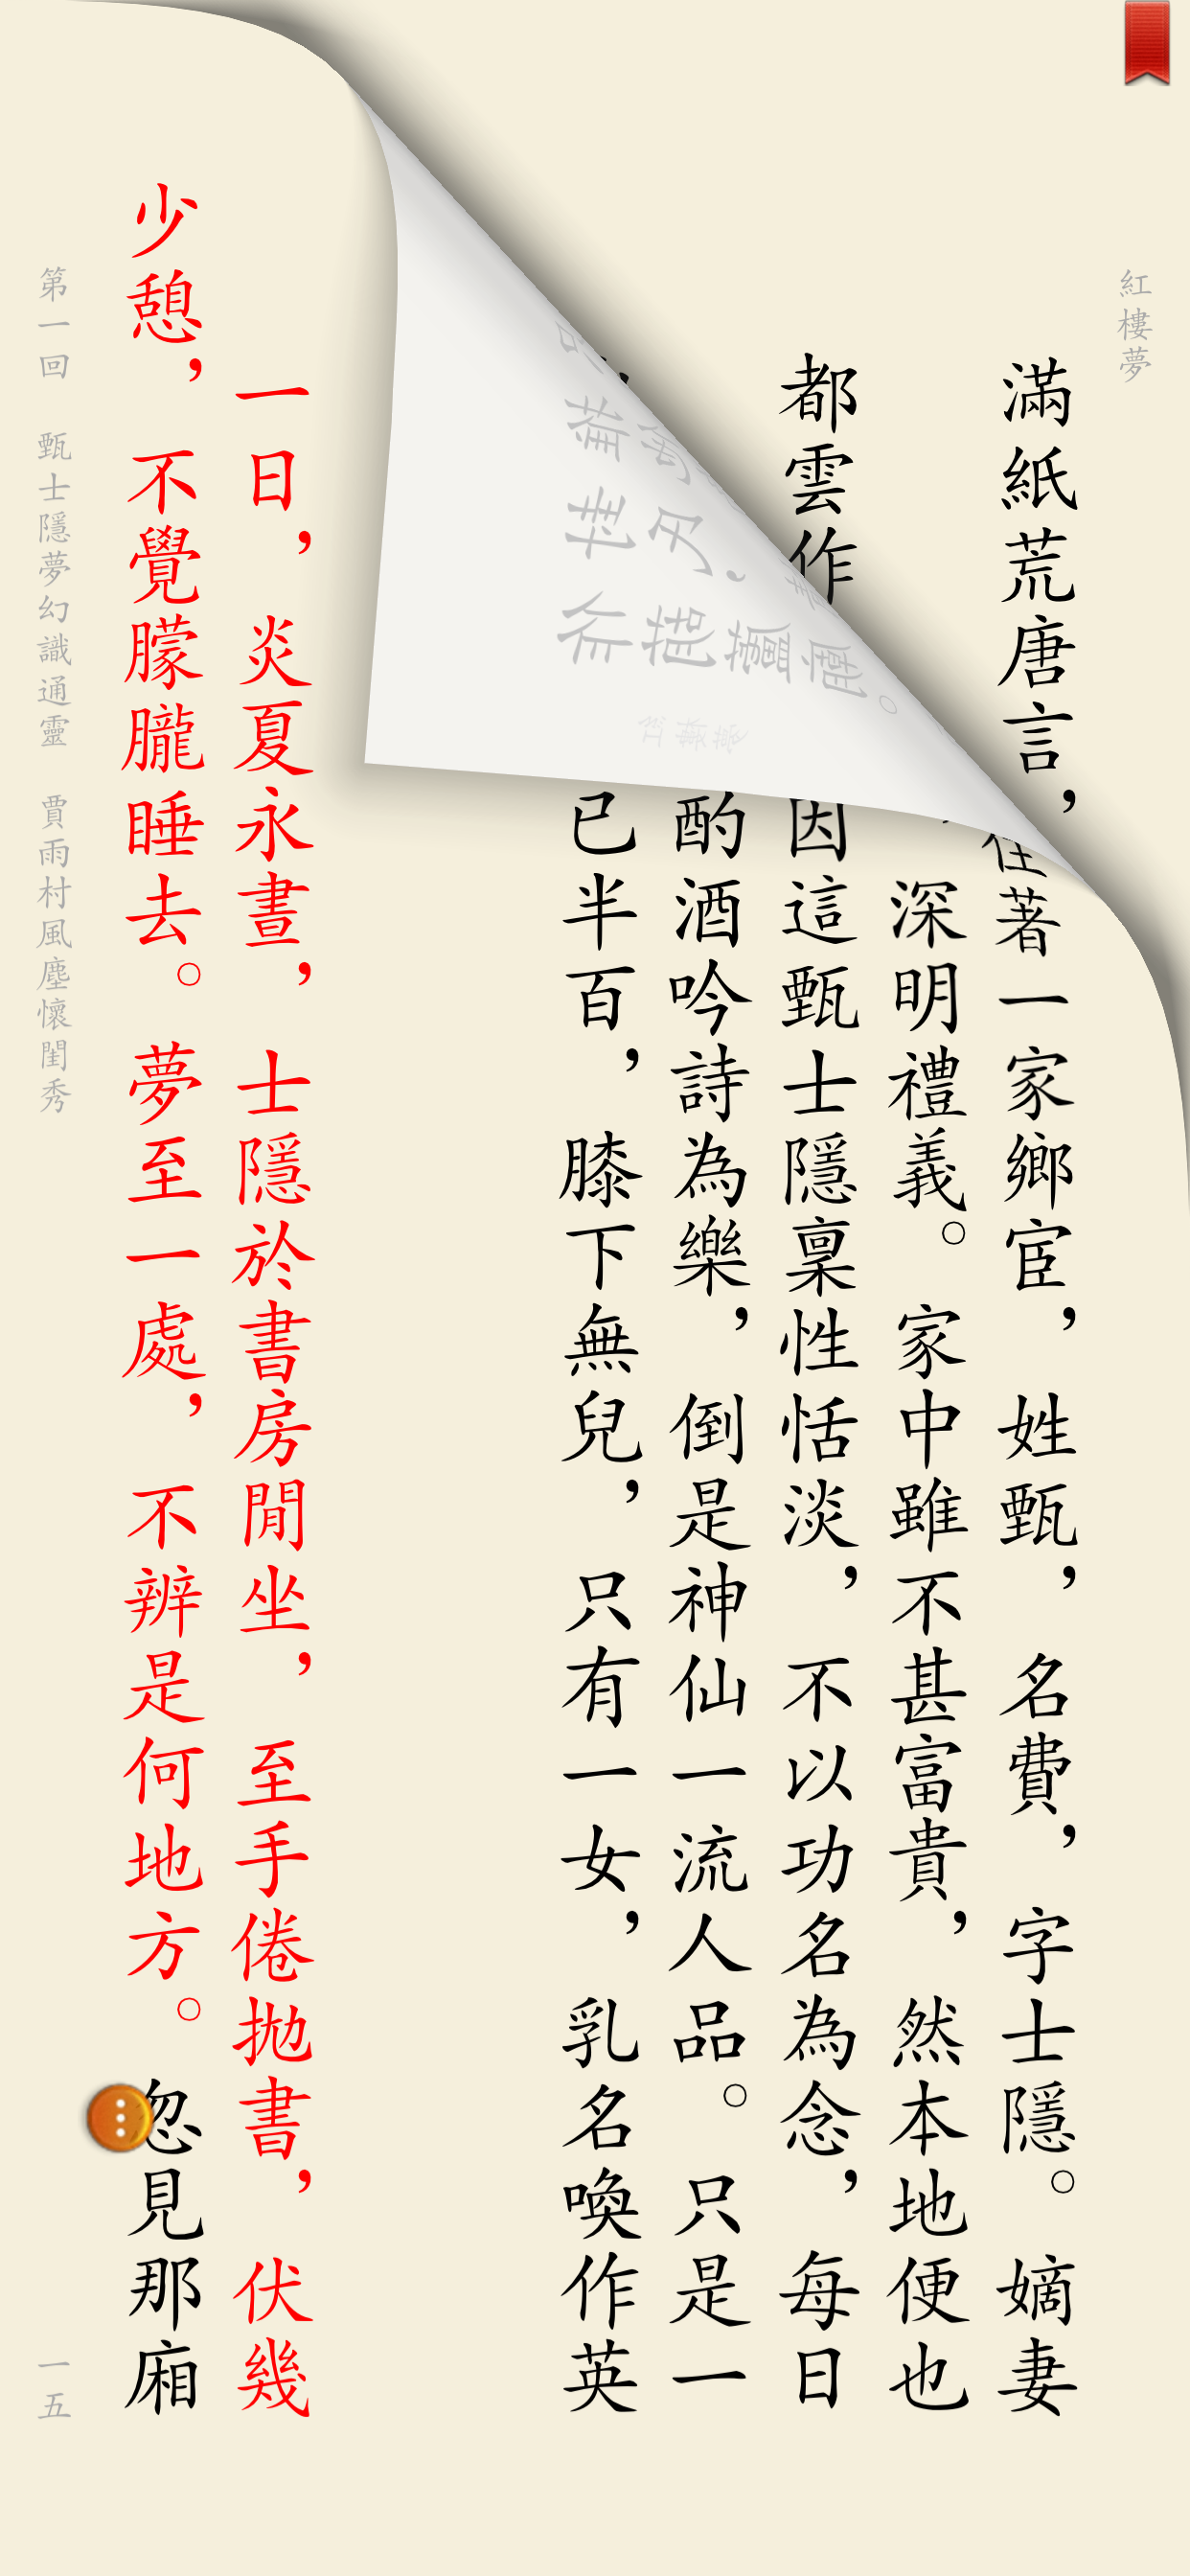 紅樓夢
滿紙荒唐言,
住著一家鄉宦,姓甄,名費,字士隱。嫡妻
深明禮義。家中雖不甚富貴,然本地便也
都雲作
因這甄士隱稟性恬淡,不以功名為念,每日
酌酒吟詩為樂,倒是神仙一流人品。只是一
已半百,膝下無兒,只有一女,乳名喚作英
一日,炎夏永晝,士隱於書房閒坐,至手倦拋書,伏幾
少憩,不覺朦朧睡去。夢至一處,不辨是何地方。忽見那廂
第一回 甄士隱夢幻識通靈 賈雨村風塵懷閨秀
一五